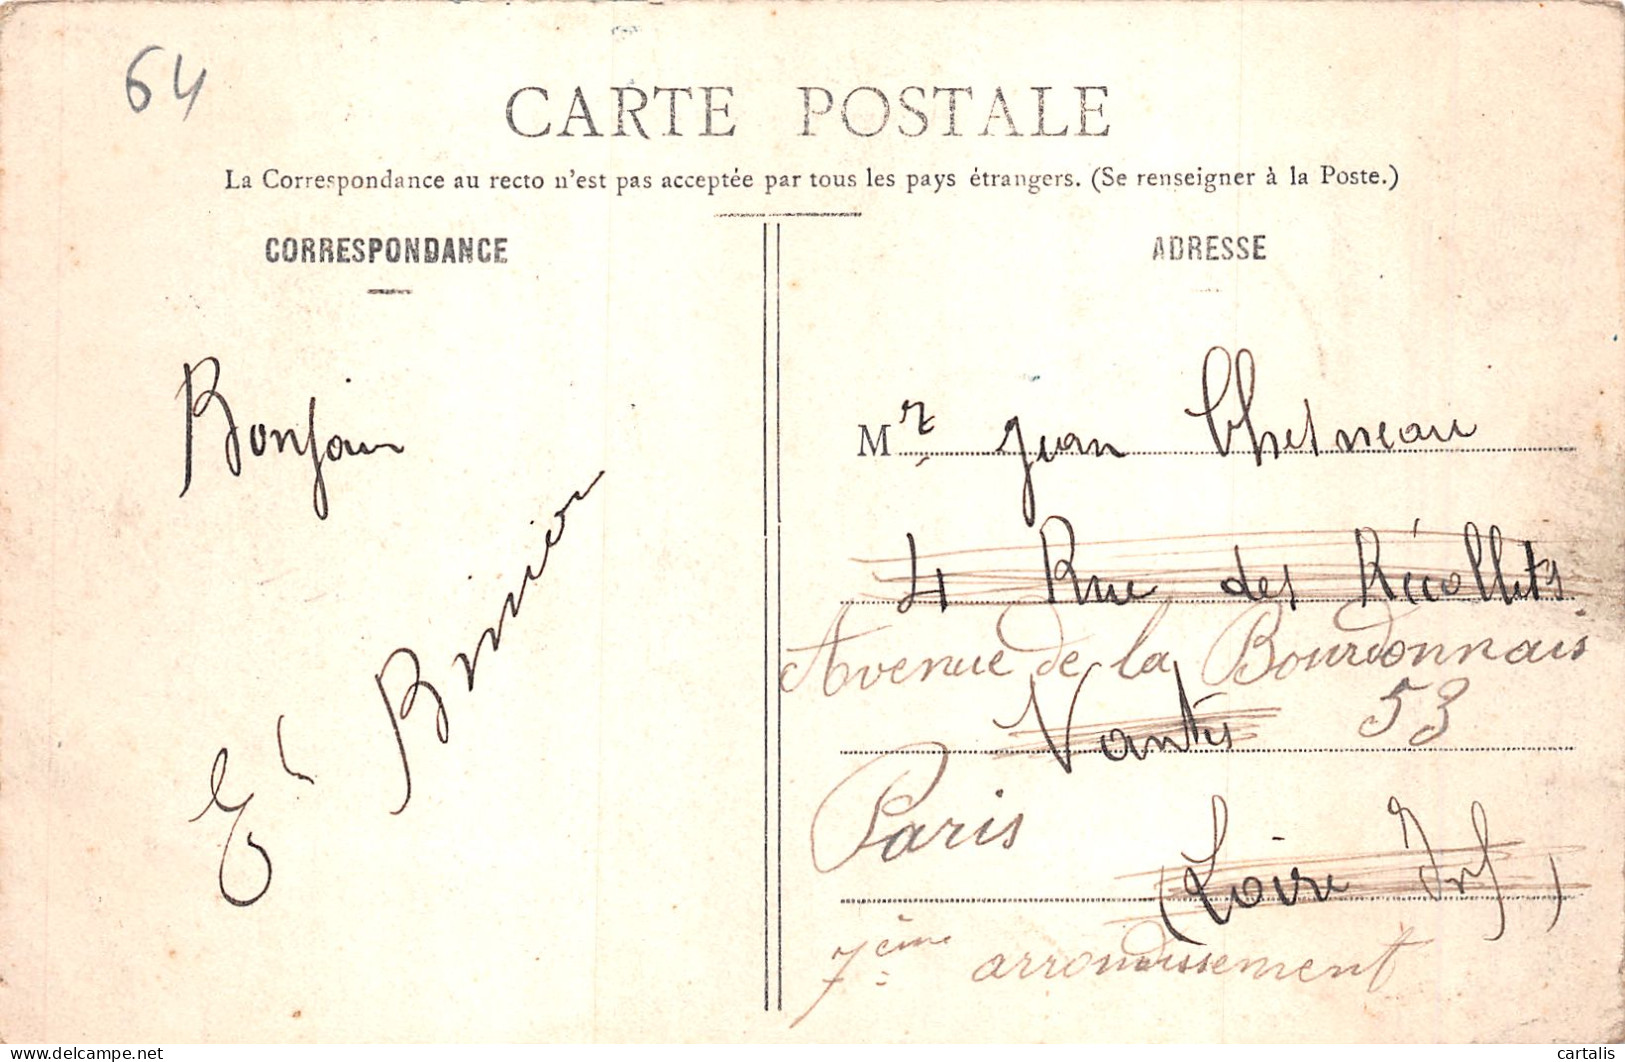 64
CARTE POSTALE
La Correspondance au recto n'est pas acceptée par tous les pays étrangers. (Se renseigner à la Poste.)
CORRESPONDANCE
Bonjour
ADRESSE
Mr Jean Chesneau
4 Rue des Récollets
Avenue de la Bourdonnais
53
Nantes
Paris
(Loire Inf)
7ème arrondissement
delcampe.net
cartalis